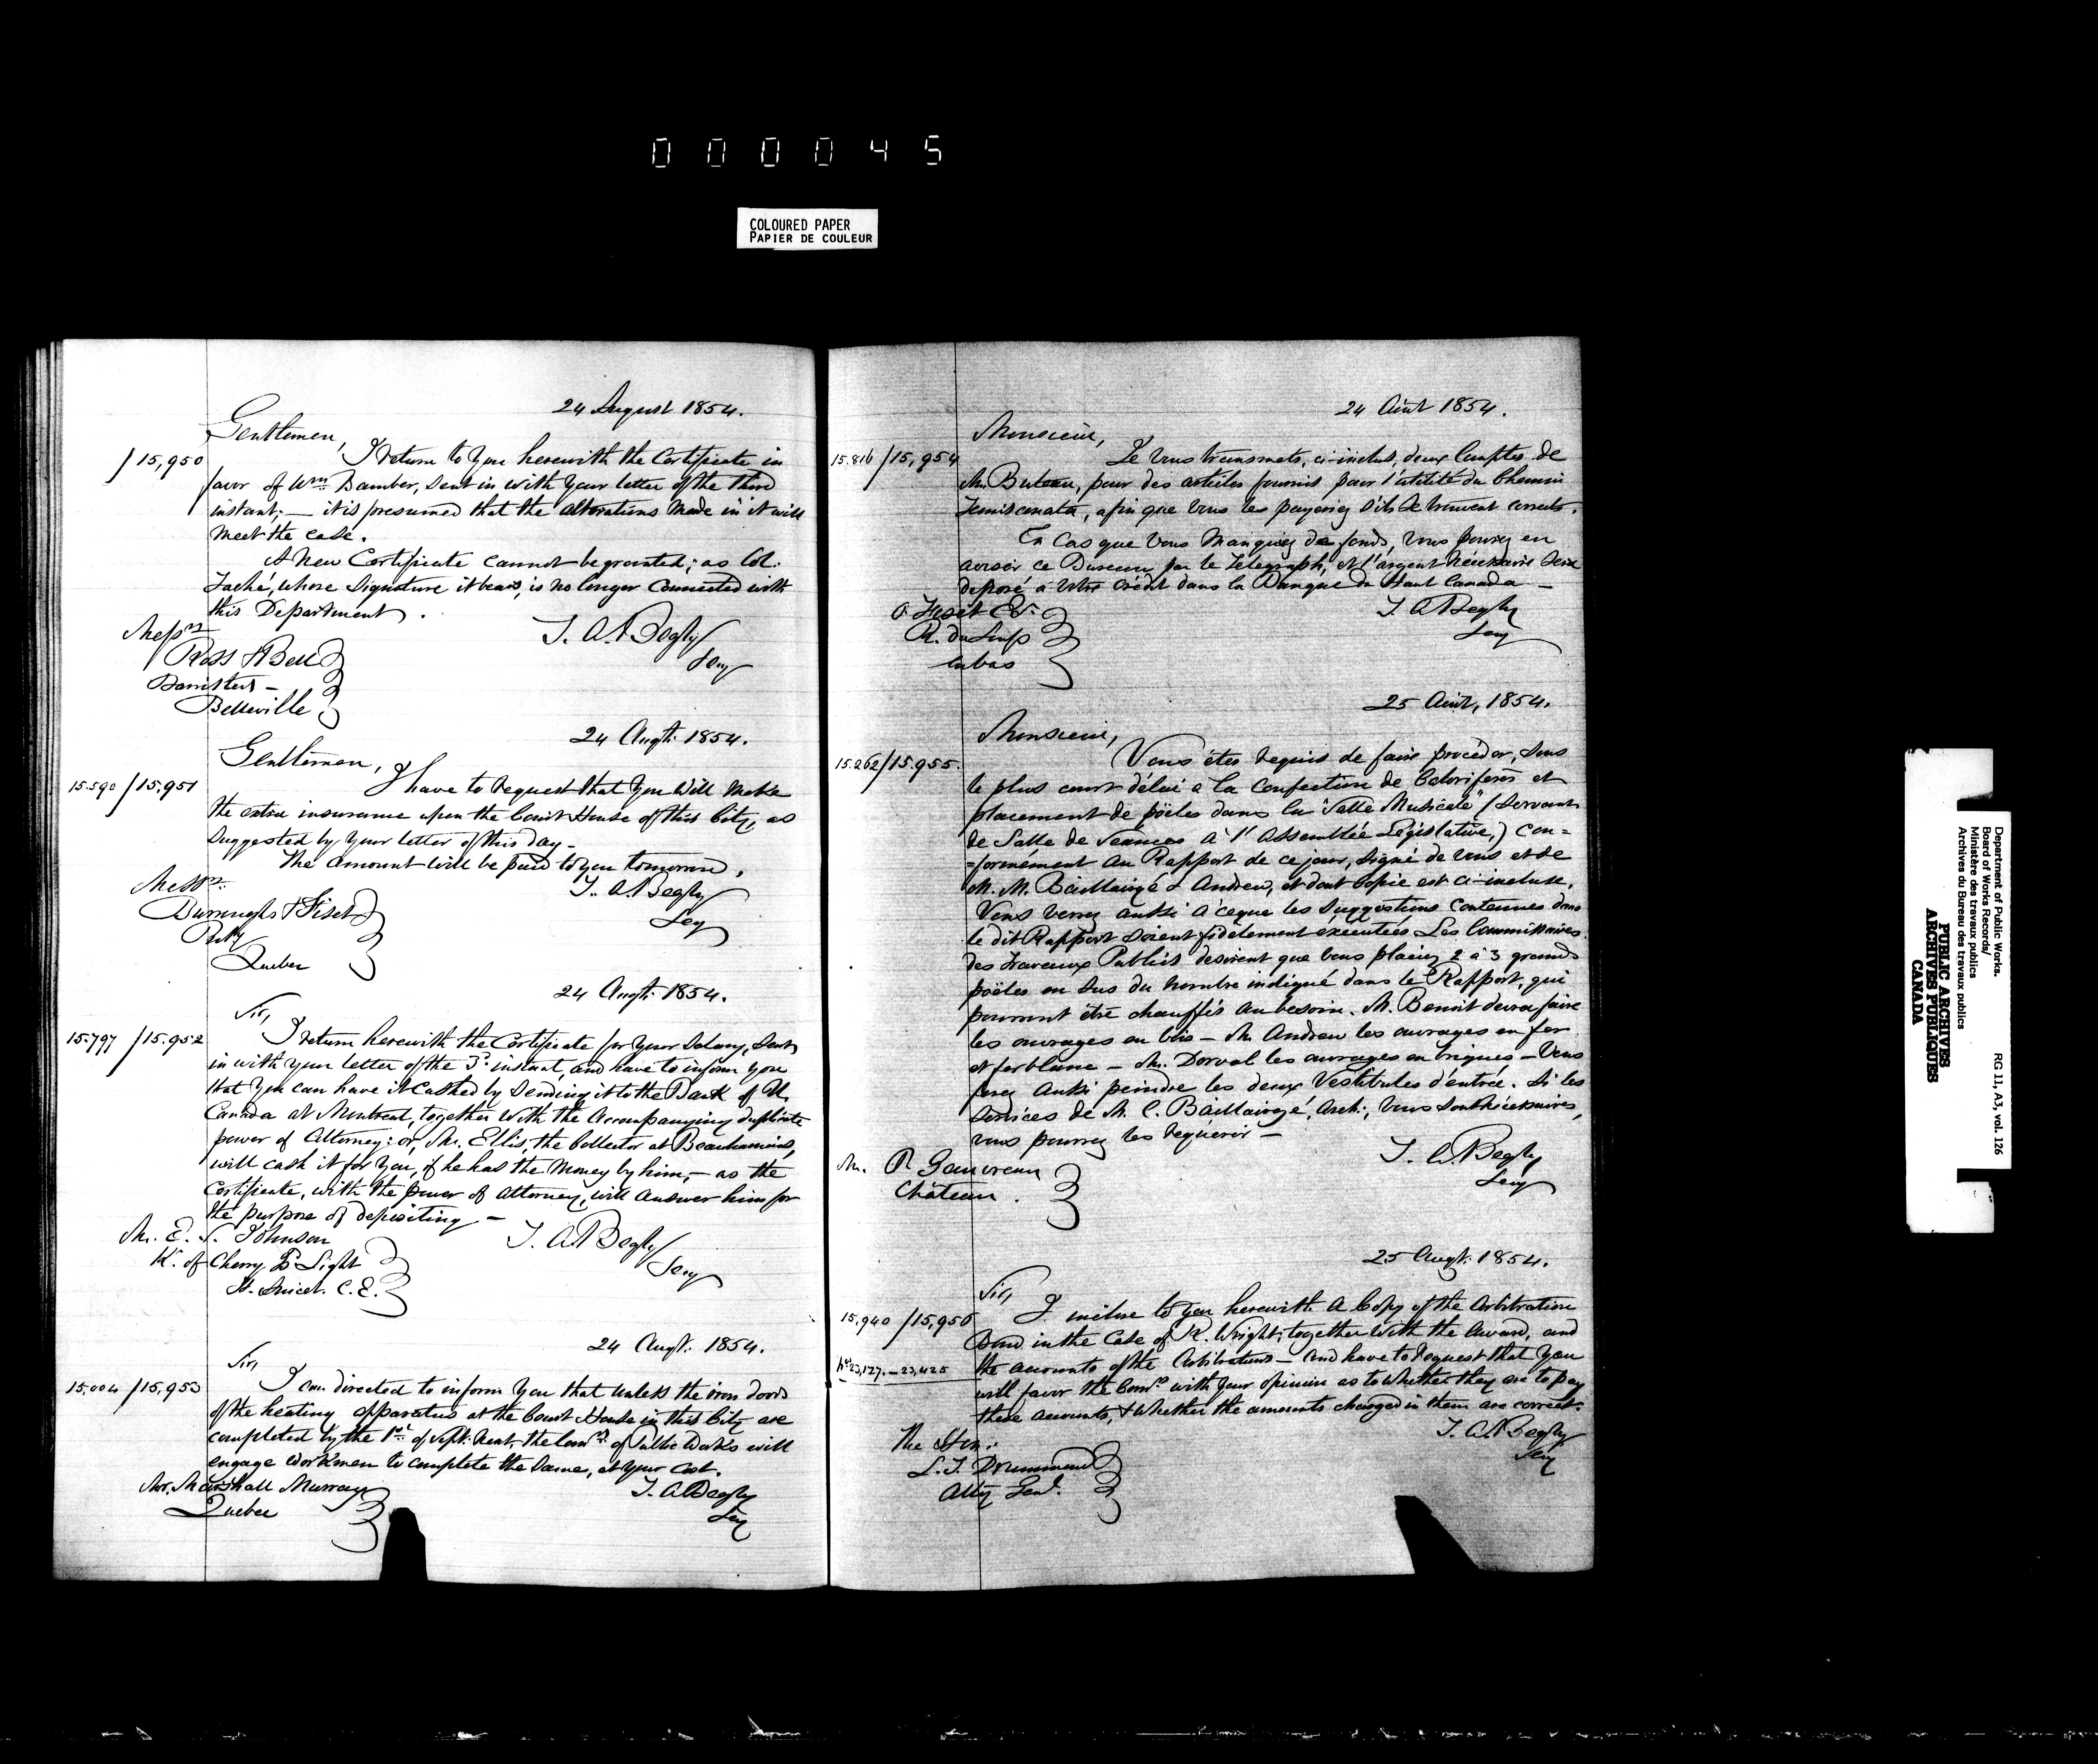 000045
COLOURED PAPER
PAPIER DE COULEUR
24 August 1854.
Gentlemen,
/15,950
I return to you herewith the Certificate in
favor of Wm. Bamber, sent in with your letter of the third
instant; — it is presumed that the alterations made in it will
meet the case.
A new Certificate cannot be granted; as Col.
Taché, whose signature it bears, is no longer connected with
this Department.
T. A. Begly
Secy
Messrs
Ross & Bell
Barristers —
Belleville
24 Augt. 1854.
Gentlemen,
15.590 /15.951
I have to request that you will make
the extra insurance upon the Court House of this City, as
suggested by your letter of this day —
The amount will be paid to you tomorrow.
T. A. Begly
Secy
Messrs.
Burroughs & Fiset
Quebec
24 Augt. 1854.
Sir,
15.797 /15.952
I return herewith the Certificate for your Salary, sent
in with your letter of the 3d instant, and have to inform you
that you can have it cashed by sending it to the Bank of U.
Canada at Montreal, together with the accompanying duplicate
power of Attorney: or, Mr. Ellis, the Collector at Beauharnois,
will cash it for you, if he has the money by him, — as the
Certificate, with the power of attorney, will answer him for
the purpose of depositing —
T. A. Begly
Secy
Mr. E. S. Johnson
Kr. of Cherry Id Light
St. Anicet. C.E.
24 Augt. 1854.
Sir,
15.004 /15,953
I am directed to inform you that unless the iron doors
of the heating apparatus at the Court House in this City are
completed by the 1st of Sept. next, the Comrs. of Public Works will
engage workmen to complete the same, at your cost.
T. A. Begly
Secy
Mr. Marshall Murray
Quebec
24 Août 1854.
Monsieur,
15.816 /15,954
Je vous transmets, ci-inclus, deux Comptes de
Mr. Buteau, pour des articles fournis pour l'utilité du Chemin
Temiscouata, afin que vous les payeriez s'ils se trouvent corrects.
En cas que vous manquez de fonds, vous pouvez en
aviser ce Bureau par le Télégraph, et l'argent nécessaire sera
déposé à votre crédit dans la Banque du Haut Canada —
T. A. Begly
Secy
R. du Loup
en bas
25 Août, 1854.
Monsieur,
15.262/15.955.
Vous êtes requis de faire procéder, sous
le plus court délai à la confection de Calorifères et
placement de poëles dans la "Salle Musicale" (servant
de Salle de Séances à l'Assemblée Législative,) con=
=formément au Rapport de ce jour, signé de vous et de
M. M. Baillairgé & Andrew, et dont copie est ci-incluse.
Vous verrez aussi à ce que les suggestions contenues dans
le dit Rapport soient fidèlement exécutées. Les Commissaires
des Travaux Publics desirent que vous placiez 2 à 3 grands
poëles en sus du nombre indiqué dans le Rapport, qui
pourront être chauffés au besoin. M. Benoit devra faire
les ouvrages en bois — M. Andrew les ouvrages en fer
et ferblanc — M. Dorval les ouvrages en briques — Vous
ferez aussi peindre les deux Vestibules d'entrée. Si les
services de M. C. Baillairgé, Arch:, vous sont nécessaires,
vous pourrez les requérir —
T. A. Begly
Secy
Mr. P. Gauvreau
Château.
25 Augt. 1854.
Sir,
15.940 /15,956
I inclose to you herewith a Copy of the Arbitration
Bond in the Case of R. Wright, together with the Award, and
Nos. 23,127. — 23,425
the accounts of the Arbitrators — and have to request that you
will favor the Comrs with your opinion as to whether they are to pay
these accounts, & whether the amounts charged in them are correct.
T. A. Begly
Secy
The Hon:
L. T. Drummond
Atty Genl.
Department of Public Works.
Board of Works Records/
Ministère des travaux publics
Archives du Bureau des travaux publics
RG 11, A3, vol. 126
PUBLIC ARCHIVES
ARCHIVES PUBLIQUES
CANADA